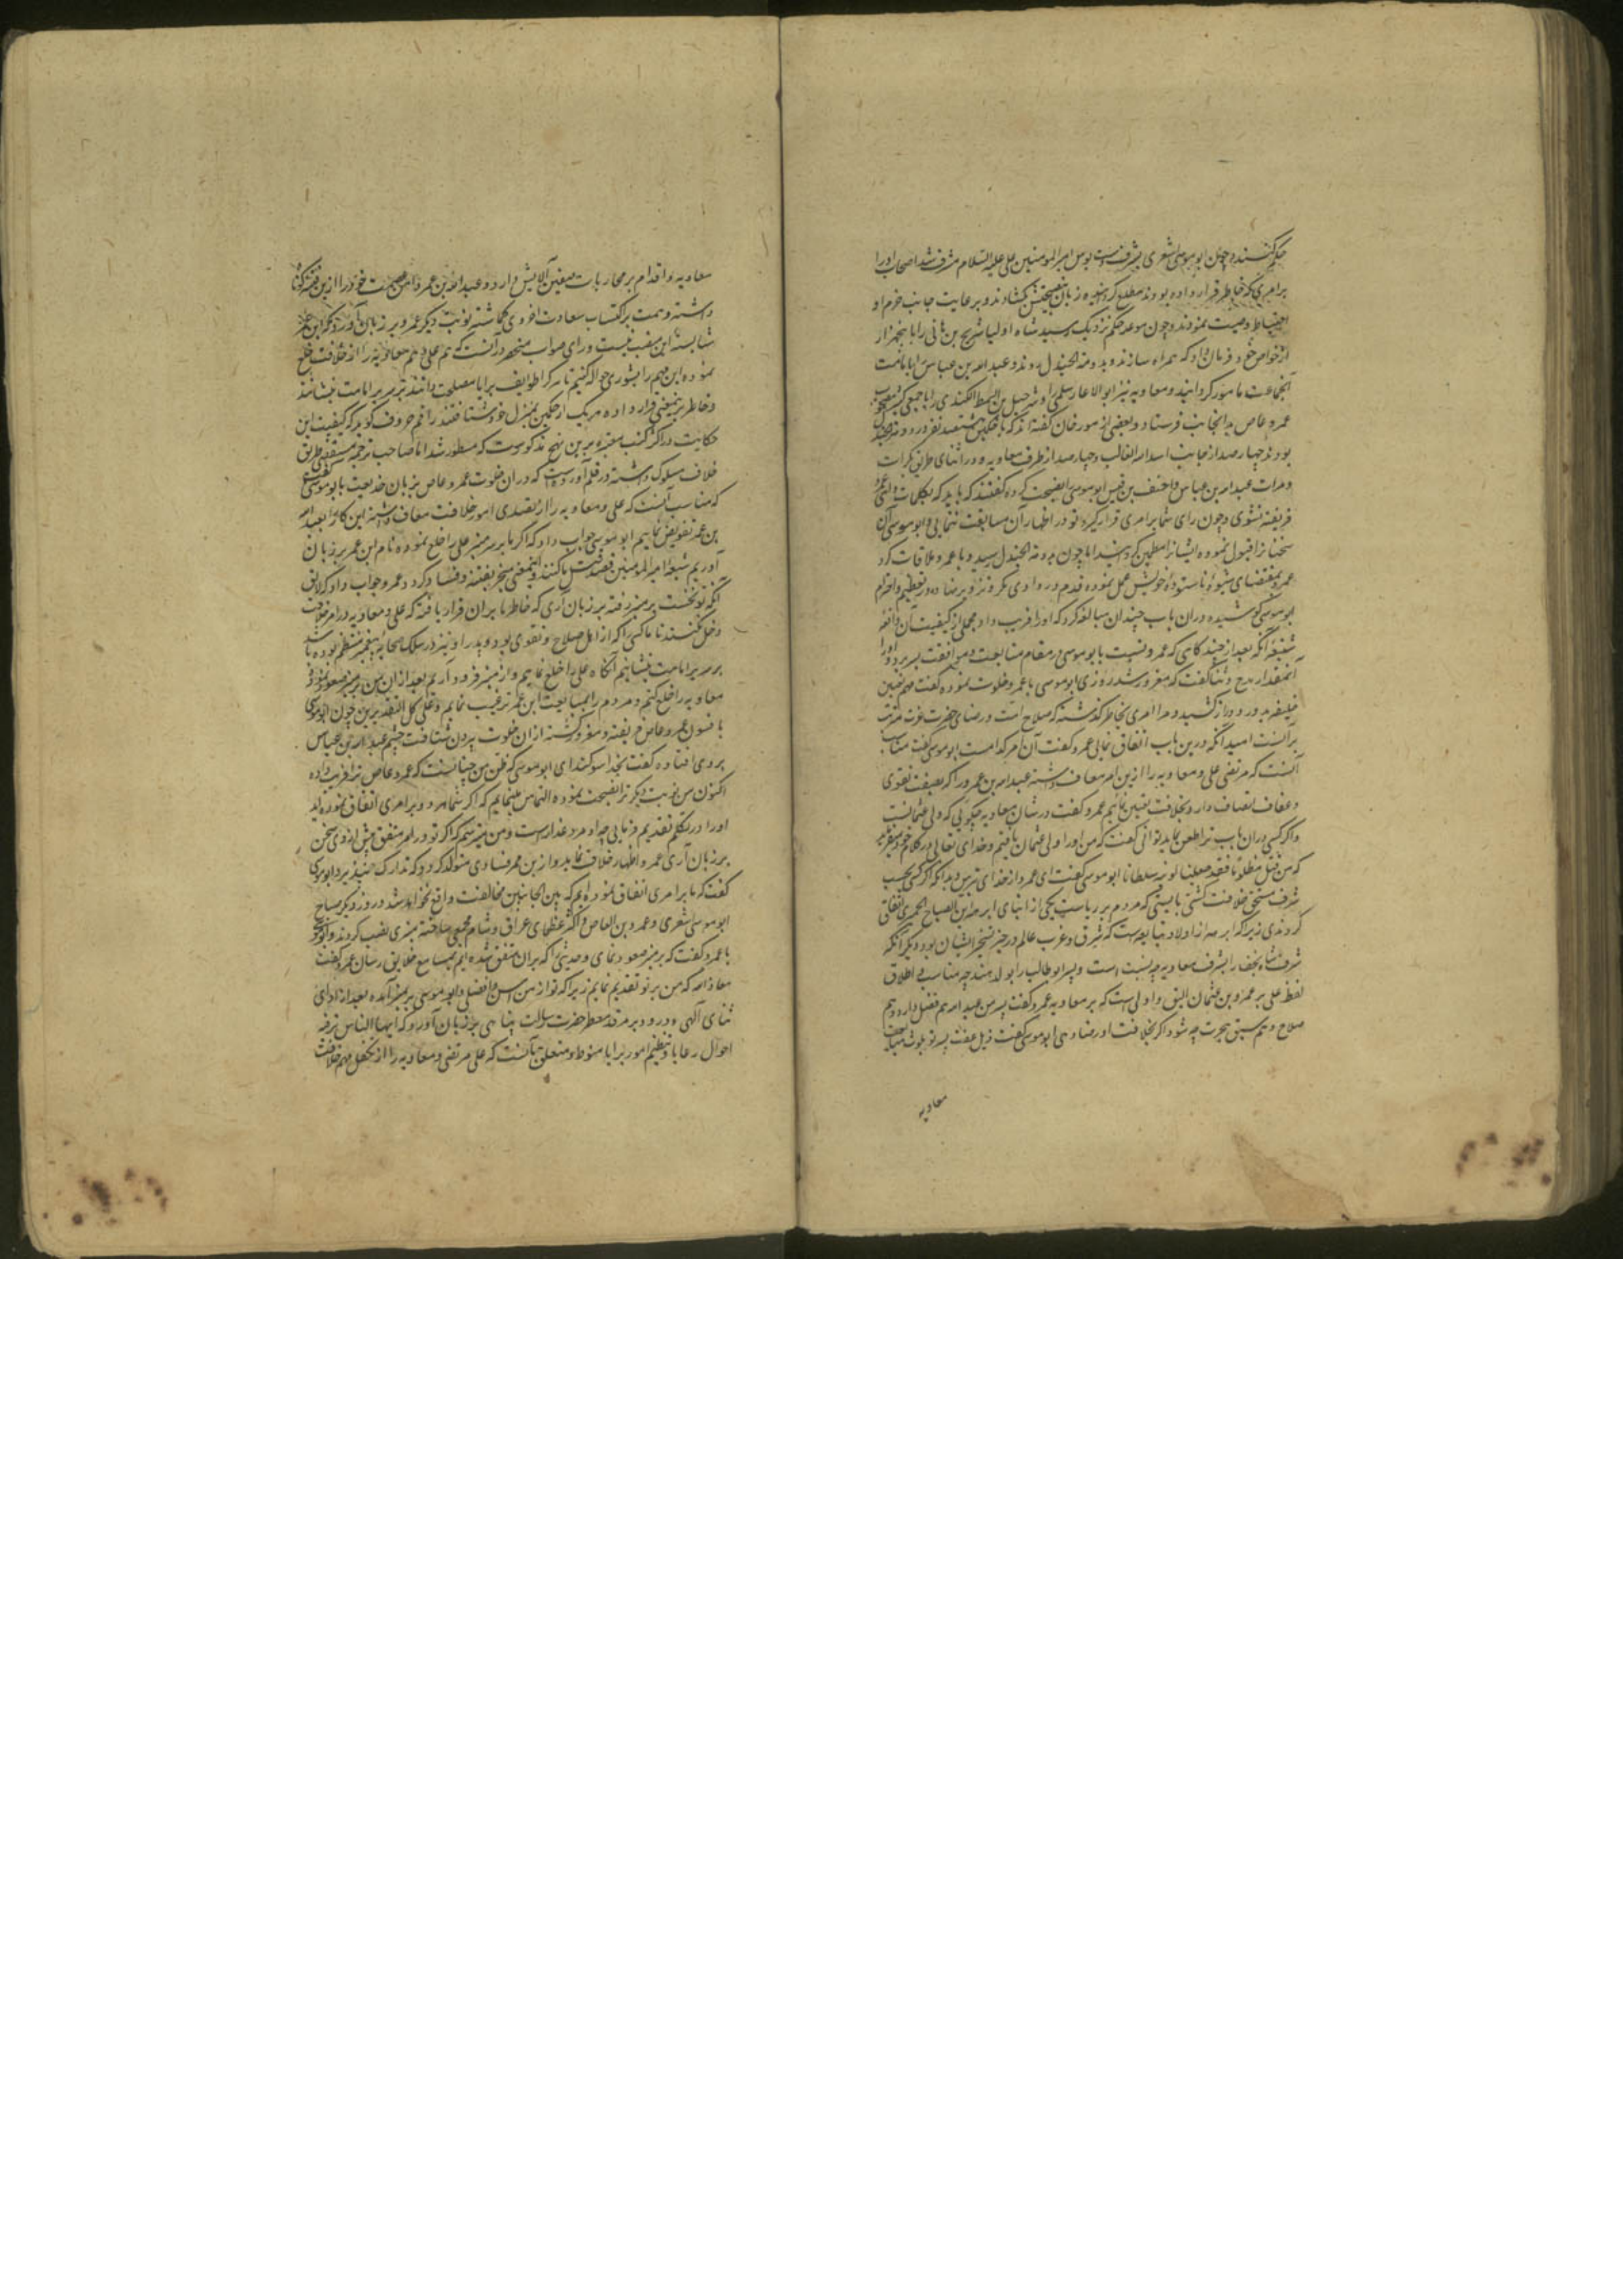 حکم کنند و چون ابوموسی اشعری بشرف دست بوس امیرالمومنین علی علیه السلام مشرف شد اصحاب او را
بر امری که خاطر قرار داده بودند مطلع کردانیده زبان بنصیحتش کشادند و برعایت جانب حزم و
احتیاط وصیت نمودند و چون موعد حکم نزدیک رسید شاه اولیا شریح بن هانی را با پنجهزار
از خواص خود فرمان داد که همراه سازند و بدومة الجندل روند و عبد الله بن عباس را بامامت
آنجماعت مامور کردانید و معاویه نیز ابوالاعور سلمی و شرحبیل بن السمط الکندی را با جمعی کثیر مصحوب
عمرو عاص بدانجانب فرستاد و بعضی از مورخان کفته اند که با حکمین هشتصد نفر در دومة الجندل
بودند چهارصد از جانب اسد الله الغالب و چهارصد از طرف معاویه و در اثنای طریق بکرات
و مرات عبد الله بن عباس و احنف بن قیس ابوموسی را نصیحت کرده کفتند که باید که بکلمات واهی عمرو
فریفته نشوی و چون رای شما بر امری قرار کیرد تو در اظهار آن مسابقت ننمایی و ابوموسی آن
سخنان را قبول نموده ایشانرا مطمئن کردانید اما چون بدومة الجندل رسید و با عمرو ملاقات کرد
عمرو بمقتضای شیوه ناستوده خویش عمل نموده قدم در وادی مکر و تزویر نهاده در تعظیم و احترام
ابوموسی کوشیده در آن باب چندان مبالغه کرد که او را فریب داد مجملی از کیفیت آن واقعه
شنیعه آنکه بعد از چند کاهی که عمرو نسبت با ابوموسی در مقام متابعت و موافقت بسر برد و او را
آنمقدار مدح و ثنا کفت که مغرور شد روزی ابوموسی با عمرو خلوت نموده کفت مهم تعیین
خلیفه بدور و دراز کشید و مرا امری بخاطر کذشته که صلاح امت و رضای حضرت عزت
بر آنست امید آنکه درین باب اتفاق نمائی عمرو کفت آن امر کدامست ابوموسی کفت مناسب
آنست که مرتضی علی و معاویه را ازین امر معاف داشته عبد الله بن عمر را که بصفت تقوی
و عفاف اتصاف دارد بخلافت تعیین نمائیم عمرو کفت در شان معاویه چکویی که ولی عثمانست
و اکر کسی در آن باب ترا طعن نماید توانی کفت که من او را ولی عثمان یافتم و خدای تعالی در کلام خود میفرماید
که من قتل مظلوما فقد جعلنا لولیه سلطانا ابوموسی کفت ای عمرو از خدای بترس و بدانکه اکر کسی بحسب
شرف مستحق خلافت کشتی بایستی که مردم بر ریاست یکی از ابنای ابرهة بن الصباح الحمیری اتفاق
کردندی زیرا که ابرهه از اولاد تبابعه است که شرق و غرب عالم در حیز تسخیر ایشان بود و دیکر آنکه
شرف شاه نجف را بشرف معاویه چه نسبت است و پسر ابوطالب را بولد هند چه مناسب اطلاق
لفظ علی بر عمرو بن عثمان الیق و اولی است که بر معاویه عمرو کفت پسر من عبد الله هم فضل دارد و هم
صلاح و هم سبق هجرت چه شود اکر بخلافت او رضا دهی ابوموسی کفت ذیل عفت پسر تو بلوث متابعت
معاویه
معاویه و اقدام بر محاربات صفین آلایش دارد و عبد الله بن عمر دامن عصمت خود را ازین فتنه کوتاه
داشته و همت بر اکتساب سعادت اخروی کماشته نوبت دیکر عمرو بر زبان آورد که ابن عمر
شایسته این منصب نیست و رای صواب منحصر در آنست که هم علی و هم معاویه را از خلافت خلع
نموده این مهم را بشوری حواله کنیم تا هر کرا طوایف برایا مصلحت دانند بر سریر امامت بنشانند
و خاطر برینمعنی قرار داده هر یک از حکمین بمنزل خود شتافتند راقم حروف کوید که کیفیت این
حکایت در اکثر کتب معتبره برین نهج مذکورست که مسطور شد اما صاحب ترجمه مستقصی طریق
خلاف مسلوک داشته در قلم آورده است که در آن خلوت عمرو عاص بزبان خدیعت با ابوموسی کفت
که مناسب آنست که علی و معاویه را از تصدی امور خلافت معاف داشته این کار را بعبد الله
بن عمر تفویض نماییم ابوموسی جواب داد که اکر ما بر سر منبر علی را خلع نموده نام ابن عمر بر زبان
آوریم شیعه امیرالمومنین قصد قتل ما کنند و اینمعنی منجر بفتنه و فساد کردد عمرو جواب داد که لایق
آنکه تو نخست بر منبر رفته بر زبان آری که خاطر ما بر آن قرار یافته که علی و معاویه در امر خلافت
دخل نکنند تا ما کسی را که از اهل صلاح و تقوی بود و پدر او نیز در سلک صحابه پیغمبر منتظم بوده باشد
بر سریر امامت بنشانیم آنکاه علی را خلع نماییم و از منبر فرود آریم بعد از آن من بر منبر صعود نموده
معاویه را خلع کنم و مردم را بمبایعت ابن عمر ترغیب نمایم و علی کل التقدیرین چون ابوموسی
بافسون عمرو عاص فریفته و مغرور کشته از آن خلوت بیرون شتافت چشم عبد الله بن عباس
بر وی افتاده کفت بخدا سوکند ای ابوموسی که ظن من چنانست که عمرو عاص ترا فریب داده
اکنون من نوبت دیکر ترا نصیحت نموده التماس مینمایم که اکر شما هر دو بر امری اتفاق نموده اید
او را در تکلم تقدیم فرمایی چه او مرد غدارست و من میترسم که اکر تو در امر متفق پیش از وی سخن
بر زبان آری عمرو اظهار خلاف نماید و ازین ممر فسادی متولد کردد که تدارک نپذیرد ابوموسی
کفت که ما بر امری اتفاق نموده ایم که بین الجانبین مخالفت واقع نخواهد شد و روز دیکر صباح
ابوموسی اشعری و عمرو بن العاص و اکثر عظمای عراق و شام مجمعی ساخته منبری نصب کردند و ابوموسی
با عمرو کفت که بر منبر صعود نمای و حدیثی را که بر آن متفق شده ایم بمسامع خلایق رسان عمرو کفت
معاذ الله که من بر تو تقدیم نمایم زیرا که تو از من اسن و افضلی و ابوموسی بر منبر آمده بعد از ادای
ثنای آلهی و درود بر مرقد معطر حضرت رسالت پناهی بر زبان آورد که ایها الناس ترفیه
احوال رعایا و تنظیم امور برایا منوط و متعلق بآنست که علی مرتضی و معاویه را از تکفل مهم خلافت